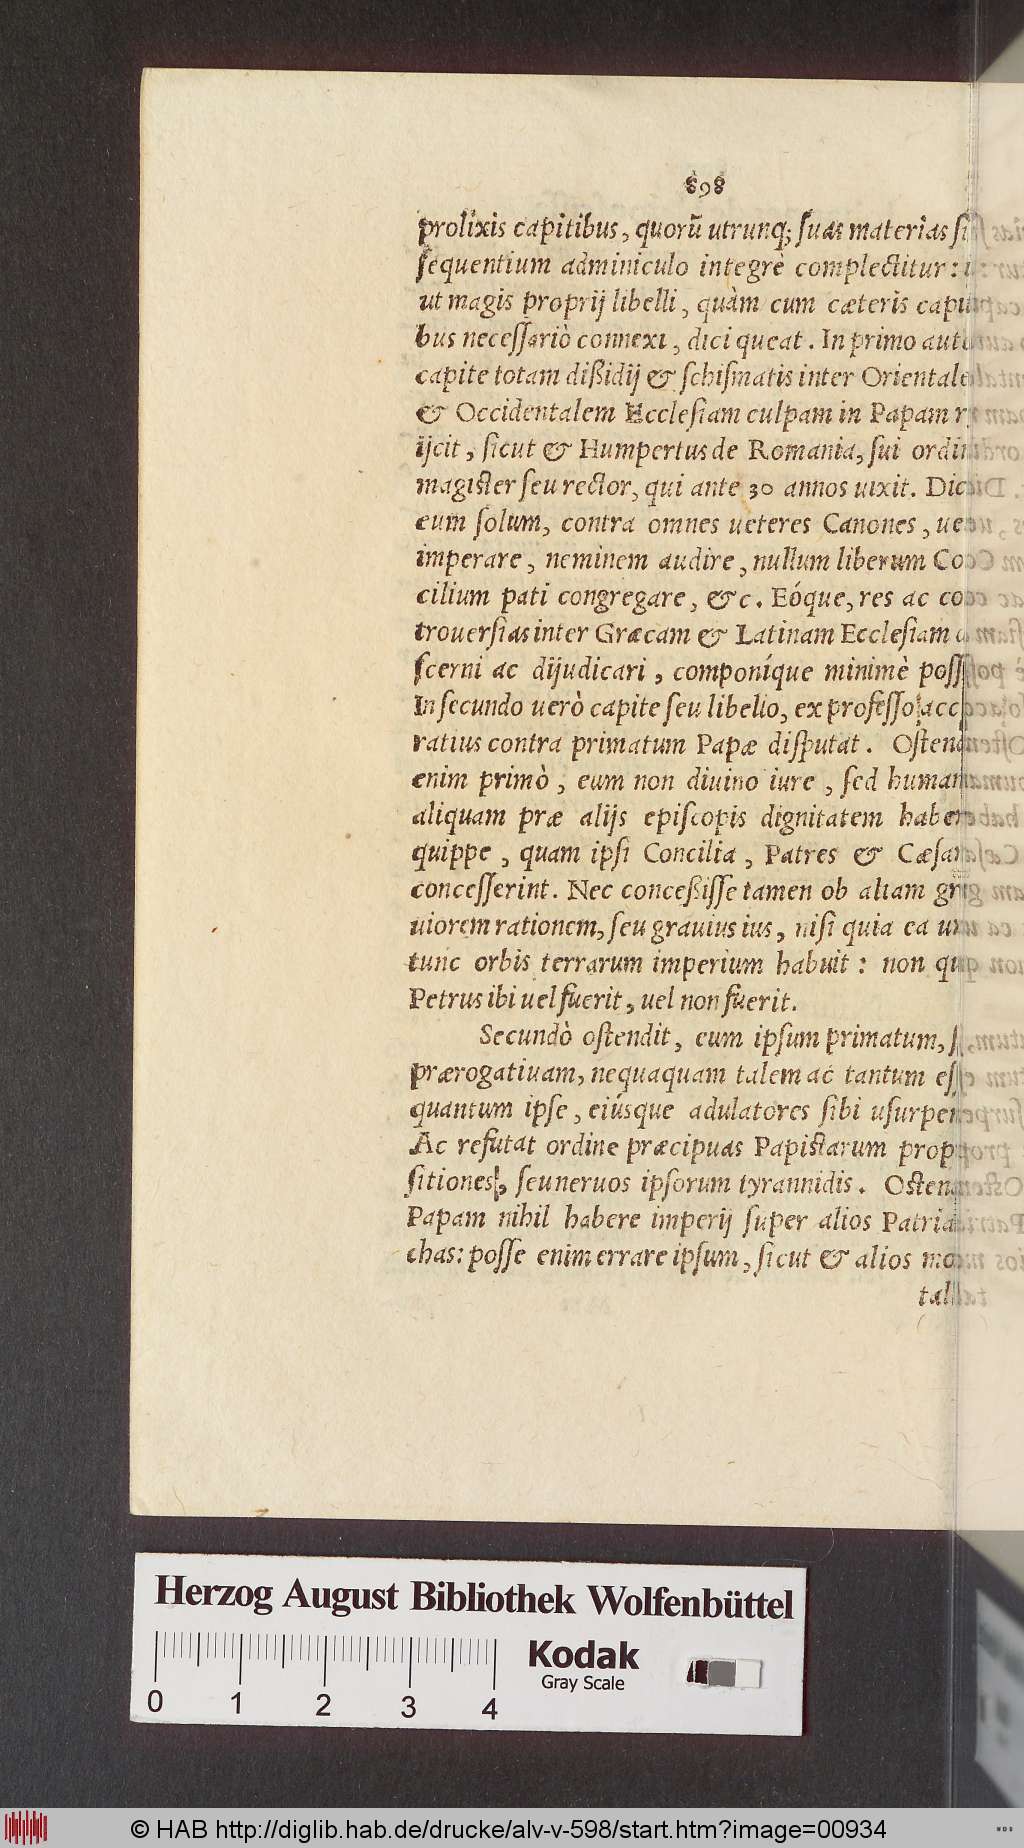 898
prolixis capitibus, quorũ utrunq; suas materias si
sequentium adminiculo integrè complectitur:
ut magis proprij libelli, quàm cum cæteris capi
bus necessariò connexi, dici queat. In primo aut
capite totam dißidij & schismatis inter Orientale
& Occidentalem Ecclesiam culpam in Papam r
ijcit, sicut & Humpertus de Romania, sui ordi
magister seu rector, qui ante 30 annos uixit. Dic
eum solum, contra omnes ueteres Canones, ue
imperare, neminem audire, nullum liberum Co
cilium pati congregare, &c. Eóque, res ac co
trouersias inter Græcam & Latinam Ecclesiam
scerni ac dijudicari, componíque minimè poss
In secundo uerò capite seu libello, ex professo acc
ratius contra primatum Papæ disputat. Osten
enim primò, eum non diuino iure, sed human
aliquam præ alijs episcopis dignitatem haber
quippe, quam ipsi Concilia, Patres & Cæsar
concesserint. Nec conceßisse tamen ob aliam gr
uiorem rationem, seu grauius ius, nisi quia ea ur
tunc orbis terrarum imperium habuit: non qu
Petrus ibi uel fuerit, uel non fuerit.
Secundò ostendit, eum ipsum primatum, s
prærogatiuam, nequaquam talem ac tantum es
quantum ipse, eiúsque adulatores sibi usurpe
Ac refutat ordine præcipuas Papistarum prop
sitiones, seu neruos ipsorum tyrannidis. Osten
Papam nihil habere imperij super alios Patria
chas: posse enim errare ipsum, sicut & alios mo
tal
Herzog August Bibliothek Wolfenbüttel
0 1 2 3 4
Kodak
Gray Scale
© HAB http://diglib.hab.de/drucke/alv-v-598/start.htm?image=00934